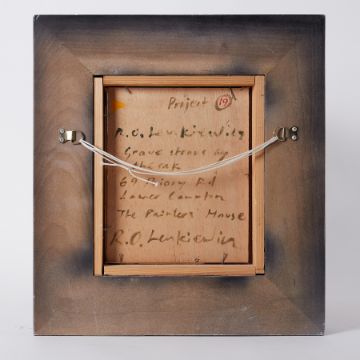 Project 19
R.O. Lenkiewicz
Grave stone by
the oak
69 Priory Rd
Lower Compton
The Painter's House
R.O. Lenkiewicz